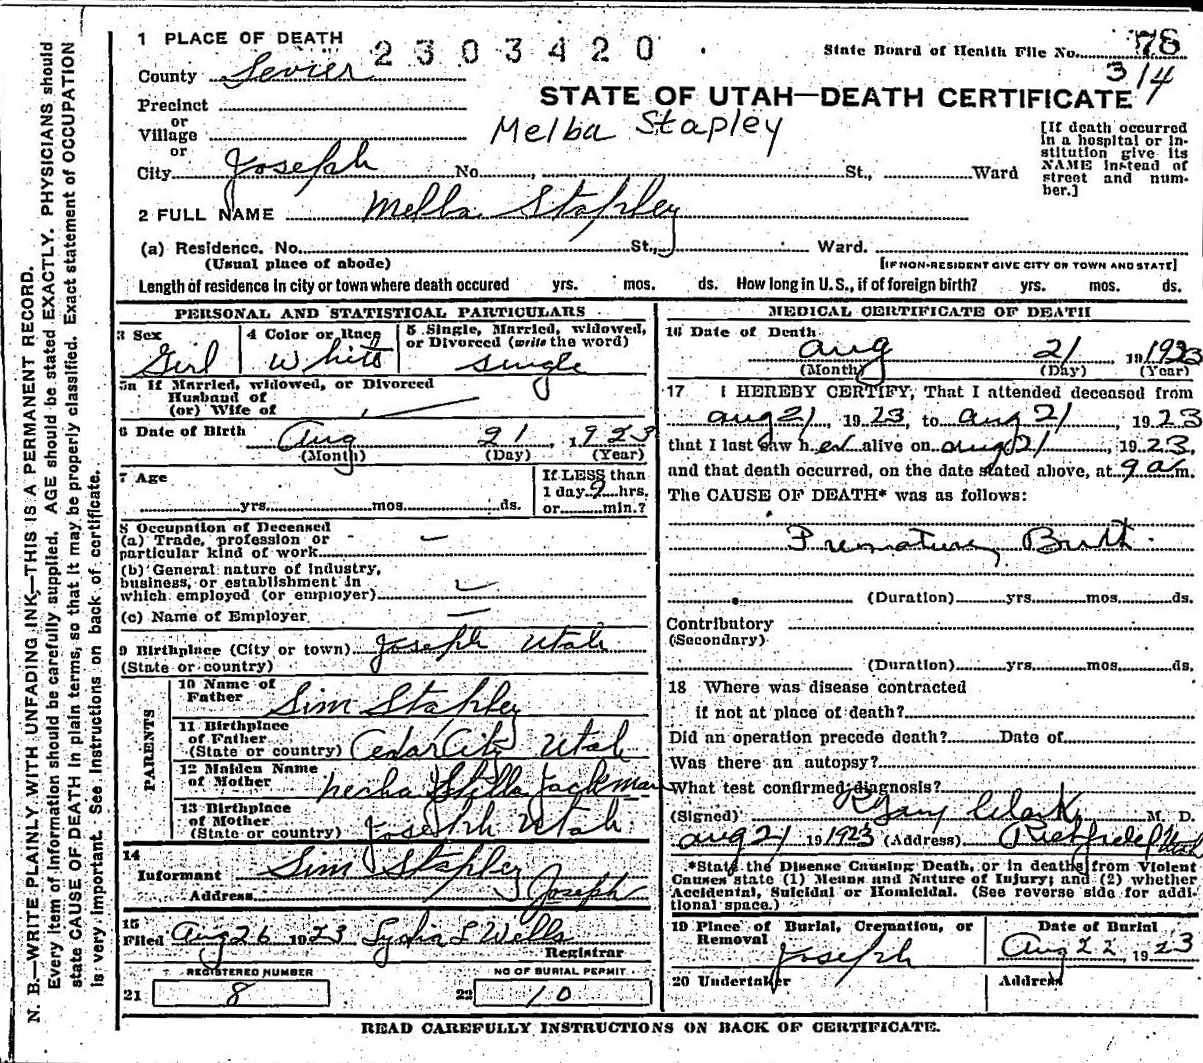 1 PLACE OF DEATH 2303420 State Board of Health File No. 78
County Sevier 314
STATE OF UTAH—DEATH CERTIFICATE
Precinct
or
Village Melba Stapley
or
City Joseph No. , St., Ward
[If death occurred
in a hospital or in-
stitution give its
NAME instead of
street and num-
ber.]
2 FULL NAME Melba Stapley
(a) Residence. No. St., Ward.
(Usual place of abode) [IF NON-RESIDENT GIVE CITY OR TOWN AND STATE]
Length of residence in city or town where death occured yrs. mos. ds. How long in U.S., if of foreign birth? yrs. mos. ds.
PERSONAL AND STATISTICAL PARTICULARS
3 Sex 4 Color or Race 5 Single, Married, widowed,
or Divorced (write the word)
Girl White single
5a If Married, widowed, or Divorced
Husband of
(or) Wife of
6 Date of Birth Aug 21, 1923
(Month) (Day) (Year)
7 Age If LESS than
1 day 9 hrs.
yrs. mos. ds. or min.?
8 Occupation of Deceased
(a) Trade, profession or
particular kind of work —
(b) General nature of Industry,
business, or establishment in
which employed (or employer)
(c) Name of Employer —
9 Birthplace (City or town) Joseph Utah
(State or country)
PARENTS
10 Name of
Father Sim Stapley
11 Birthplace
of Father
(State or country) Cedar City Utah
12 Maiden Name
of Mother Stella Jackman
13 Birthplace
of Mother
(State or country) Joseph Utah
14
Informant Sim Stapley
Address Joseph
15
Filed Aug 26 1923 Lydia L Wells
Registrar
REGISTERED NUMBER NO OF BURIAL PERMIT
21 8 22 10
MEDICAL CERTIFICATE OF DEATH
16 Date of Death
Aug 21, 1923
(Month) (Day) (Year)
17 I HEREBY CERTIFY, That I attended deceased from
Aug 21, 1923, to Aug 21, 1923
that I last saw her alive on Aug 21, 1923,
and that death occurred, on the date stated above, at 9 a m.
The CAUSE OF DEATH* was as follows:
Premature Birth
(Duration) yrs. mos. ds.
Contributory
(Secondary)
(Duration) yrs. mos. ds.
18 Where was disease contracted
if not at place of death?
Did an operation precede death? Date of
Was there an autopsy?
What test confirmed diagnosis?
(Signed) Clark, M. D.
Aug 21 19 1923 (Address) Richfield Utah
*State the Disease Causing Death, or in deaths from Violent
Causes state (1) Means and Nature of Injury; and (2) whether
Accidental, Suicidal or Homicidal. (See reverse side for addi-
tional space.)
19 Place of Burial, Cremation, or
Removal Joseph
Date of Burial
Aug 22, 1923
20 Undertaker Address
READ CAREFULLY INSTRUCTIONS ON BACK OF CERTIFICATE.
N. B.—WRITE PLAINLY WITH UNFADING INK,—THIS IS A PERMANENT RECORD.
Every item of information should be carefully supplied. AGE should be stated EXACTLY. PHYSICIANS should
state CAUSE OF DEATH in plain terms, so that it may be properly classified. Exact statement of OCCUPATION
is very important. See Instructions on back of certificate.